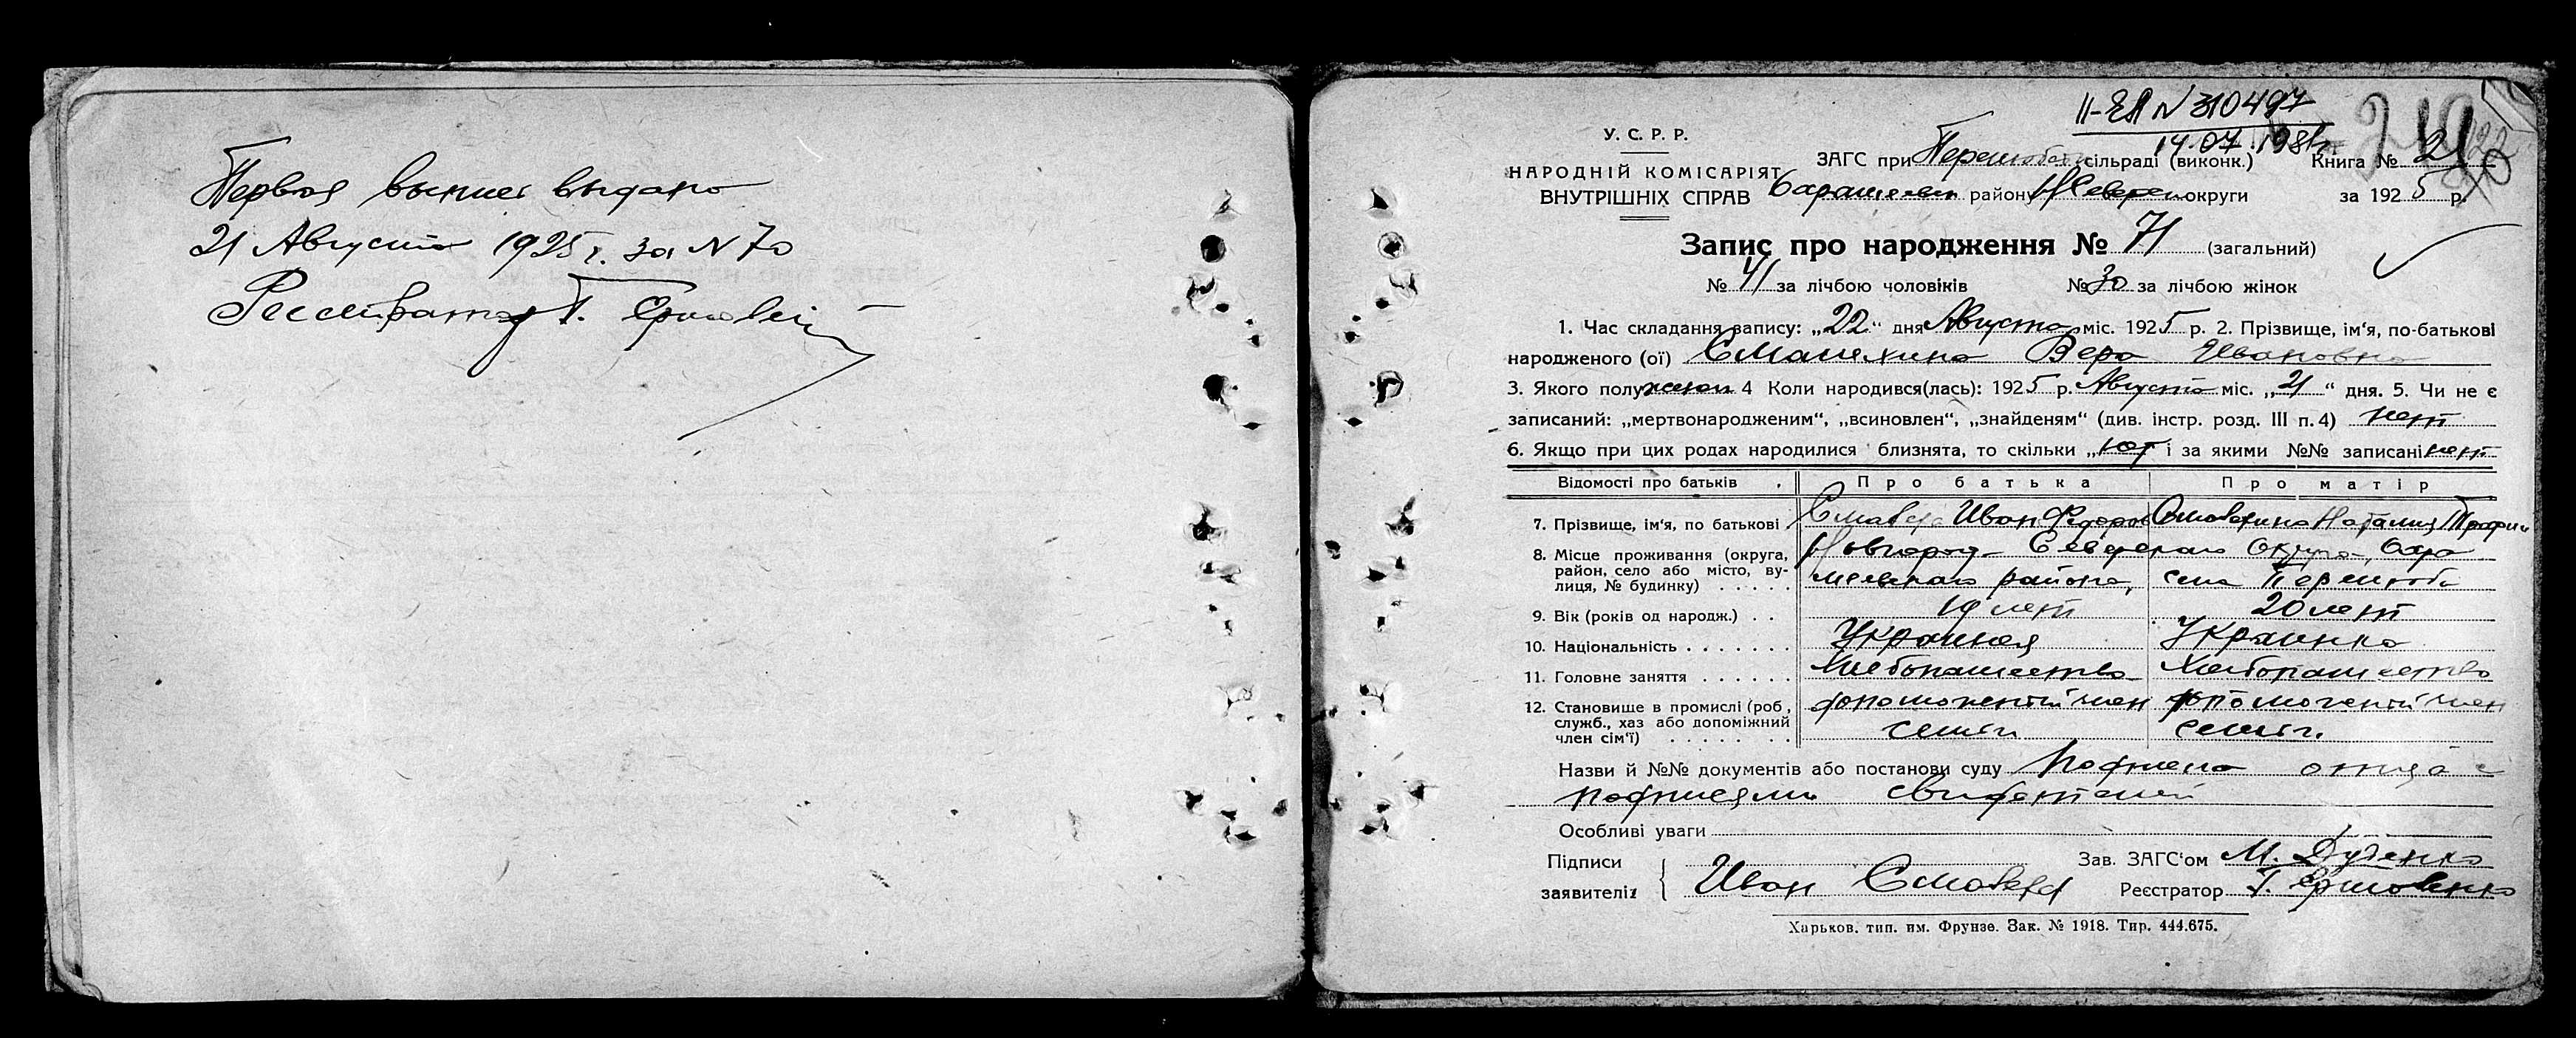 Первая выпись выдана
21 Августа 1925 г. за N 70
Регистратор Г.
II-ЕЛ N 310497
14.07.1981г
У. С. Р. Р.
НАРОДНІЙ КОМІСАРІЯТ
ВНУТРІШНІХ СПРАВ
ЗАГС при сільраді (виконк.) Книга № 2
району округи за 1925 р.
Запис про народження № 71 (загальний)
№ 41 за лічбою чоловіків № 30 за лічбою жінок
1. Час складання запису: „22“ дня Августа міс. 1925 р. 2. Прізвище, ім‘я, по-батькові
народженого (ої) Вера Ивановна
3. Якого полу женск 4 Коли народився(лась): 1925 р. Августа міс. „21“ дня. 5. Чи не є
записаний: „мертвонародженим“, „всиновлен“, „знайденям“ (див. інстр. розд. III п. 4) нет
6. Якщо при цих родах народилися близнята, то скільки „нет і за якими №№ записані нет
Відомості про батьків Про батька Про матір
7. Прізвище, ім‘я, по батькові Иван Федоров Наталия Трофим
8. Місце проживання (округа, район, село або місто, вулиця, № будинку) Новгород-Северского Округа,
района, села
9. Вік (років од народж.) 19 лет 20 лет
10. Національність Украинец Украинка
11. Головне заняття Хлебопашество Хлебопашество
12. Становище в промислі (роб, служб., хаз або допоміжний член сім‘ї) член член
семьи семьи
Назви й №№ документів або постанови суду отца с
подписями свидетелей
Особливі уваги
Підписи Зав. ЗАГС‘ом М.
заявителів Иван Реєстратор Г.
Харьков. тип. им. Фрунзе. Зак. № 1918. Тир. 444.675.